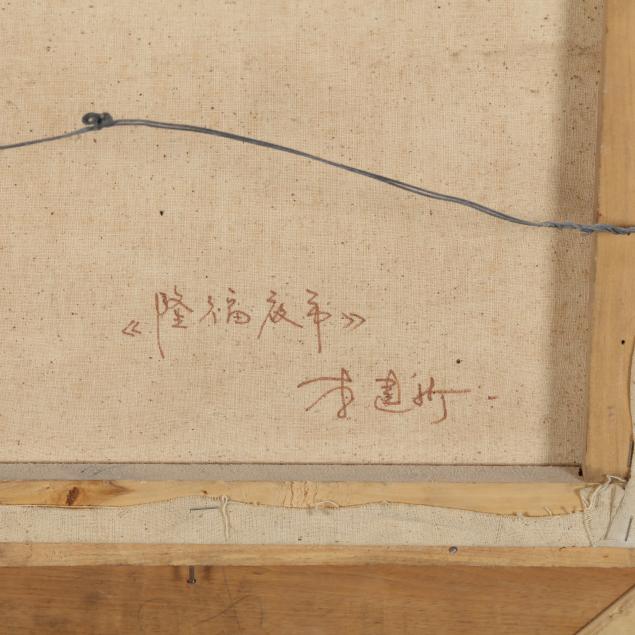 《隆福夜市》
李建新